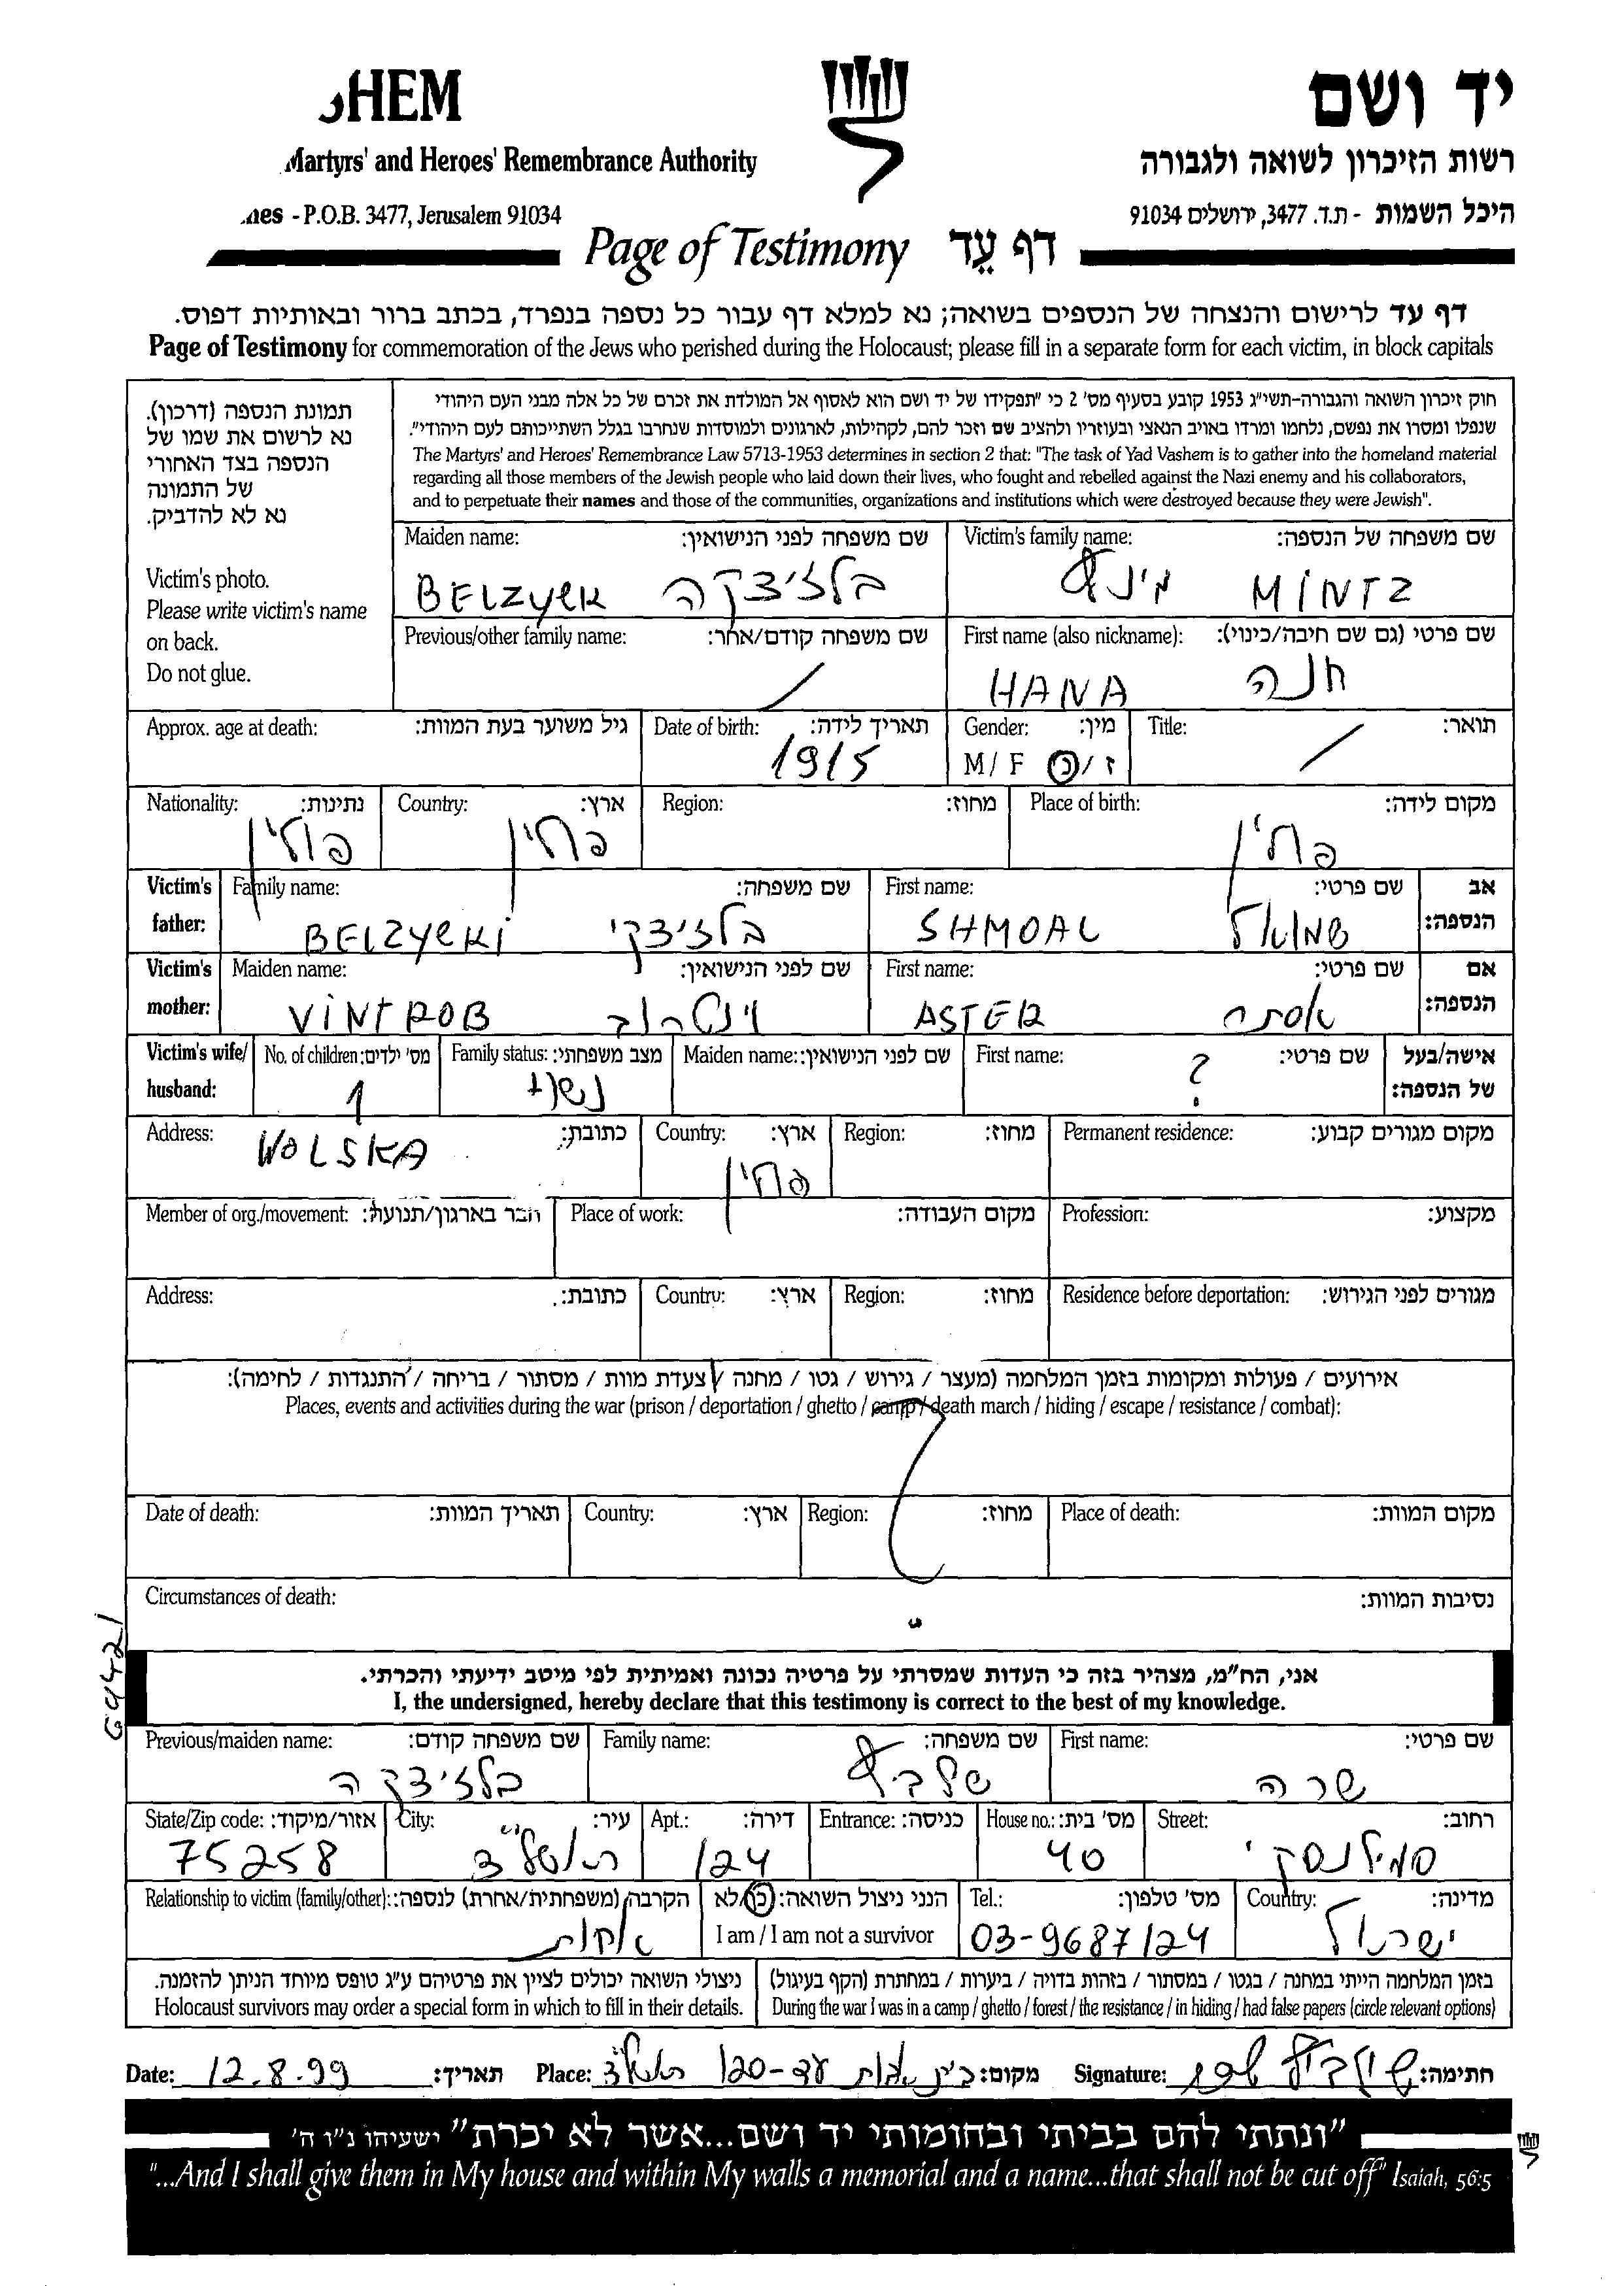 HEM
יד ושם
Martyrs' and Heroes' Remembrance Authority
רשות הזיכרון לשואה ולגבורה
- P.O.B. 3477, Jerusalem 91034
היכל השמות - ת.ד. 3477, ירושלים 91034
Page of Testimony דף עֵד
דף עד לרישום והנצחה של הנספים בשואה; נא למלא דף עבור כל נספה בנפרד, בכתב ברור ובאותיות דפוס.
Page of Testimony for commemoration of the Jews who perished during the Holocaust; please fill in a separate form for each victim, in block capitals
תמונת הנספה (דרכון).
נא לרשום את שמו של
הנספה בצד האחורי
של התמונה
נא לא להדביק.
Victim's photo.
Please write victim's name
on back.
Do not glue.
חוק זיכרון השואה והגבורה-תשי"ג 1953 קובע בסעיף מס' 2 כי "תפקידו של יד ושם הוא לאסוף אל המולדת את זכרם של כל אלה מבני העם היהודי
שנפלו ומסרו את נפשם, נלחמו ומרדו באויב הנאצי ובעוזריו ולהציב שם וזכר להם, לקהילות, לארגונים ולמוסדות שנחרבו בגלל השתייכותם לעם היהודי".
The Martyrs' and Heroes' Remembrance Law 5713-1953 determines in section 2 that: "The task of Yad Vashem is to gather into the homeland material
regarding all those members of the Jewish people who laid down their lives, who fought and rebelled against the Nazi enemy and his collaborators,
and to perpetuate their names and those of the communities, organizations and institutions which were destroyed because they were Jewish".
Maiden name: שם משפחה לפני הנישואין: Victim's family name: שם משפחה של הנספה:
BELZYCK בלז'יצקה מינץ MINTZ
Previous/other family name: שם משפחה קודם/אחר: First name (also nickname): שם פרטי (גם שם חיבה/כינוי):
/ HANA חנה
Approx. age at death: גיל משוער בעת המוות: Date of birth: תאריך לידה: Gender: מין: Title: תואר:
1915 M / F ז / נ /
Nationality: נתינות: Country: ארץ: Region: מחוז: Place of birth: מקום לידה:
פולין פולין פולין
Victim's father: Family name: שם משפחה: First name: שם פרטי: אב הנספה:
BELZYCKI בלז'יצקי SHMOAL שמואל
Victim's mother: Maiden name: שם לפני הנישואין: First name: שם פרטי: אם הנספה:
VINTROB וינטרוב ASTER אסתר
Victim's wife/ husband: No. of children: מס' ילדים: Family status: מצב משפחתי: Maiden name: שם לפני הנישואין: First name: שם פרטי: אישה/בעל של הנספה:
1 נשוי ?
Address: כתובת: Country: ארץ: Region: מחוז: Permanent residence: מקום מגורים קבוע:
WOLSKA פולין
Member of org./movement: חבר בארגון/תנועה: Place of work: מקום העבודה: Profession: מקצוע:
Address: כתובת: Country: ארץ: Region: מחוז: Residence before deportation: מגורים לפני הגירוש:
אירועים / פעולות ומקומות בזמן המלחמה (מעצר / גירוש / גטו / מחנה / צעדת מוות / מסתור / בריחה / התנגדות / לחימה):
Places, events and activities during the war (prison / deportation / ghetto / camp / death march / hiding / escape / resistance / combat):
?
Date of death: תאריך המוות: Country: ארץ: Region: מחוז: Place of death: מקום המוות:
Circumstances of death: נסיבות המוות:
אני, הח"מ, מצהיר בזה כי העדות שמסרתי על פרטיה נכונה ואמיתית לפי מיטב ידיעתי והכרתי.
I, the undersigned, hereby declare that this testimony is correct to the best of my knowledge.
Previous/maiden name: שם משפחה קודם: Family name: שם משפחה: First name: שם פרטי:
בלז'יצקה שרה
State/Zip code: אזור/מיקוד: City: עיר: Apt.: דירה: Entrance: כניסה: House no.: מס' בית: Street: רחוב:
75258 ראשל"צ 124 40 סמילנסקי
Relationship to victim (family/other): הקרבה (משפחתית/אחרת) לנספה: הנני ניצול השואה: כן/לא Tel.: מס' טלפון: Country: מדינה:
אחות I am / I am not a survivor 03-9687124 ישראל
ניצולי השואה יכולים לציין את פרטיהם ע"ג טופס מיוחד הניתן להזמנה. בזמן המלחמה הייתי במחנה / בגטו / במסתור / בזהות בדויה / ביערות / במחתרת (הקף בעיגול)
Holocaust survivors may order a special form in which to fill in their details. During the war I was in a camp / ghetto / forest / the resistance / in hiding / had false papers (circle relevant options)
Date: 12.8.99 תאריך: Place: ראשל"צ מקום: Signature: חתימה:
"ונתתי להם בביתי ובחומותי יד ושם...אשר לא יכרת" ישעיהו נ"ו ה'
"...And I shall give them in My house and within My walls a memorial and a name...that shall not be cut off" Isaiah, 56:5